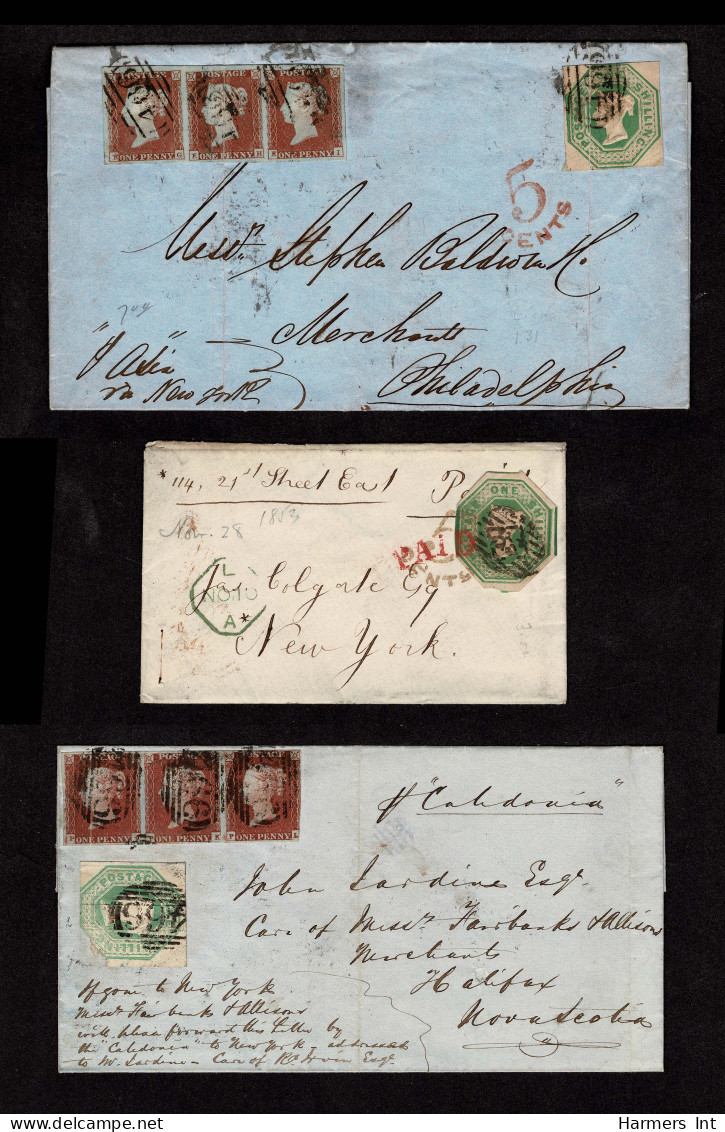 POSTAGE POSTAGE POSTAGE
ONE PENNY ONE PENNY ONE PENNY
5
CENTS
Messrs Stephen Baldwin & Co.
Merchants
Philadelphia
"Asia"
via New York
114, 21st Street East
1853
Nov. 28
ONE
PAID
L
NO 10
A
Jas Colgate Esq
New York.
ONE PENNY ONE PENNY ONE PENNY
POSTAGE
"Caledonia"
John Jardine Esqr.
Care of Messrs Fairbanks & Allisons
Merchants
Halifax
Nova Scotia
If gone to New York
Messrs Fairbanks & Allisons
will please forward this letter by
the "Caledonia" to New York - addressed
to Mr Jardine - Care of Irvin Esqr.
Harmers Int